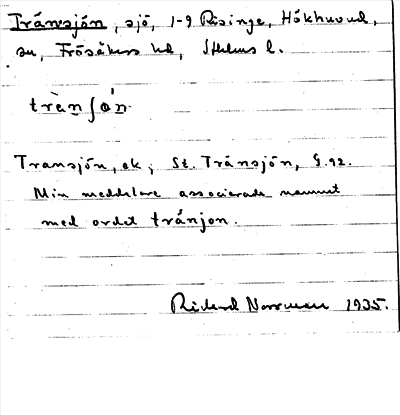 Trånsjön, sjö, 1-9 Risinge, Hökhuvud,
sn, Frösåkers hd, Sthlms l.
trànʃǿn.
Transjön, ek; St. Tränsjön, G. 92.
Min meddelare associerade namnet
med ordet tránjon.
Rickard Norrman 1935.